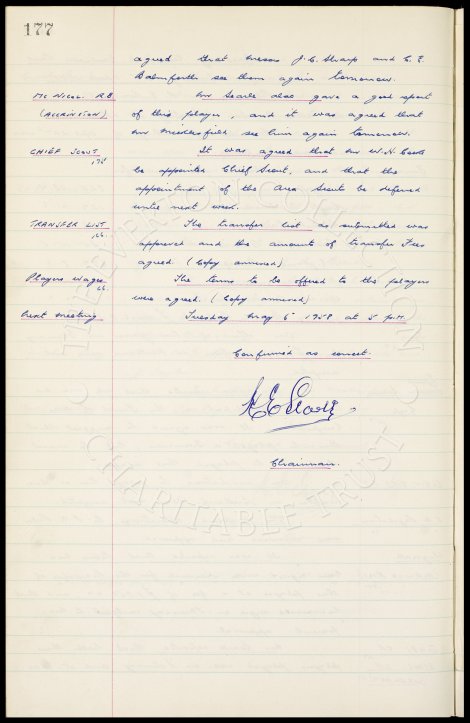 177
agreed that Messrs J.C. Sharp and C.E.
Balmforth see them again tomorrow.
McNICOL. R.B. Mr Searle also gave a good report
(ACCRINGTON) of this player, and it was agreed that
Mr see him again tomorrow.
CHIEF SCOUT It was agreed that Mr W.H. Cooke
be appointed Chief Scout, and that the
appointment of the Area Scouts be deferred
until next week.
TRANSFER LIST The transfer list as submitted was
approved and the amount of transfer fees
agreed (Copy annexed)
Players Wages The terms to be offered to the players
were agreed. (Copy annexed)
Next meeting Tuesday May 6 1958 at 5 p.m.
Confirmed as correct.
Chairman.
THE EVERTON COLLECTION
CHARITABLE TRUST